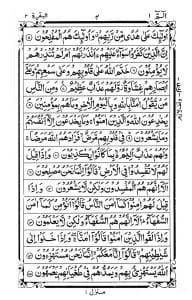 البقرة ٢
٢
الٓمّٓ ١
اُولٰٓئِكَ عَلٰى هُدًى مِّنْ رَّبِّهِمْ وَاُولٰٓئِكَ هُمُ الْمُفْلِحُوْنَ
اِنَّ الَّذِيْنَ كَفَرُوْا سَوَآءٌ عَلَيْهِمْ ءَاَنْذَرْتَهُمْ اَمْ لَمْ تُنْذِرْهُمْ
لَا يُؤْمِنُوْنَ خَتَمَ اللّٰهُ عَلٰى قُلُوْبِهِمْ وَعَلٰى سَمْعِهِمْ وَعَلٰٓى
اَبْصَارِهِمْ غِشَاوَةٌ وَّلَهُمْ عَذَابٌ عَظِيْمٌ وَمِنَ النَّاسِ
مَنْ يَّقُوْلُ اٰمَنَّا بِاللّٰهِ وَبِالْيَوْمِ الْاٰخِرِ وَمَا هُمْ بِمُؤْمِنِيْنَ
يُخٰدِعُوْنَ اللّٰهَ وَالَّذِيْنَ اٰمَنُوْا وَمَا يَخْدَعُوْنَ اِلَّآ اَنْفُسَهُمْ
وَمَا يَشْعُرُوْنَ فِيْ قُلُوْبِهِمْ مَّرَضٌ فَزَادَهُمُ اللّٰهُ مَرَضًا
وَلَهُمْ عَذَابٌ اَلِيْمٌ بِمَا كَانُوْا يَكْذِبُوْنَ وَاِذَا قِيْلَ
لَهُمْ لَا تُفْسِدُوْا فِي الْاَرْضِ قَالُوْٓا اِنَّمَا نَحْنُ مُصْلِحُوْنَ
اَلَآ اِنَّهُمْ هُمُ الْمُفْسِدُوْنَ وَلٰكِنْ لَّا يَشْعُرُوْنَ وَاِذَا
قِيْلَ لَهُمْ اٰمِنُوْا كَمَآ اٰمَنَ النَّاسُ قَالُوْٓا اَنُؤْمِنُ كَمَآ اٰمَنَ
السُّفَهَآءُ اَلَآ اِنَّهُمْ هُمُ السُّفَهَآءُ وَلٰكِنْ لَّا يَعْلَمُوْنَ
وَاِذَا لَقُوا الَّذِيْنَ اٰمَنُوْا قَالُوْٓا اٰمَنَّا وَاِذَا خَلَوْا اِلٰى
شَيٰطِيْنِهِمْ قَالُوْٓا اِنَّا مَعَكُمْ اِنَّمَا نَحْنُ مُسْتَهْزِءُوْنَ
اَللّٰهُ يَسْتَهْزِئُ بِهِمْ وَيَمُدُّهُمْ فِيْ طُغْيَانِهِمْ يَعْمَهُوْنَ
منزل ١